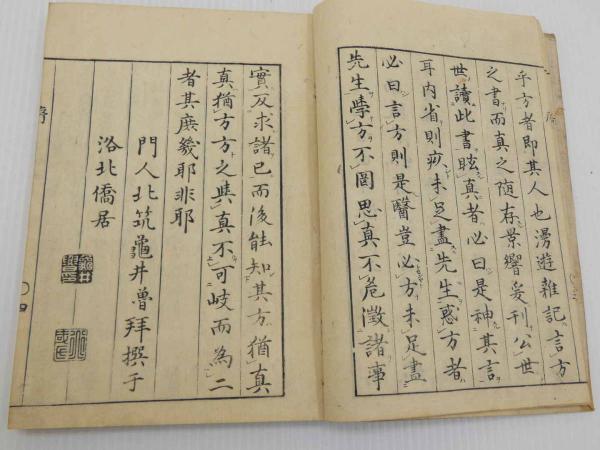 序
乎方者即其人也漫遊雜記言方
之書而真之随存景響爰刊公世
世讀此書眩真者必曰是神其言
耳内省則疚未足盡先生惑方者
必曰言方則是醫豈必方未足盡
先生學方不罔思真不危徵諸事
實反求諸已而後能知其方猶真
真猶方方之與真不可岐而為二
者其庶幾耶非耶
門人北筑龜井魯拜撰于
洛北僑居
序
四